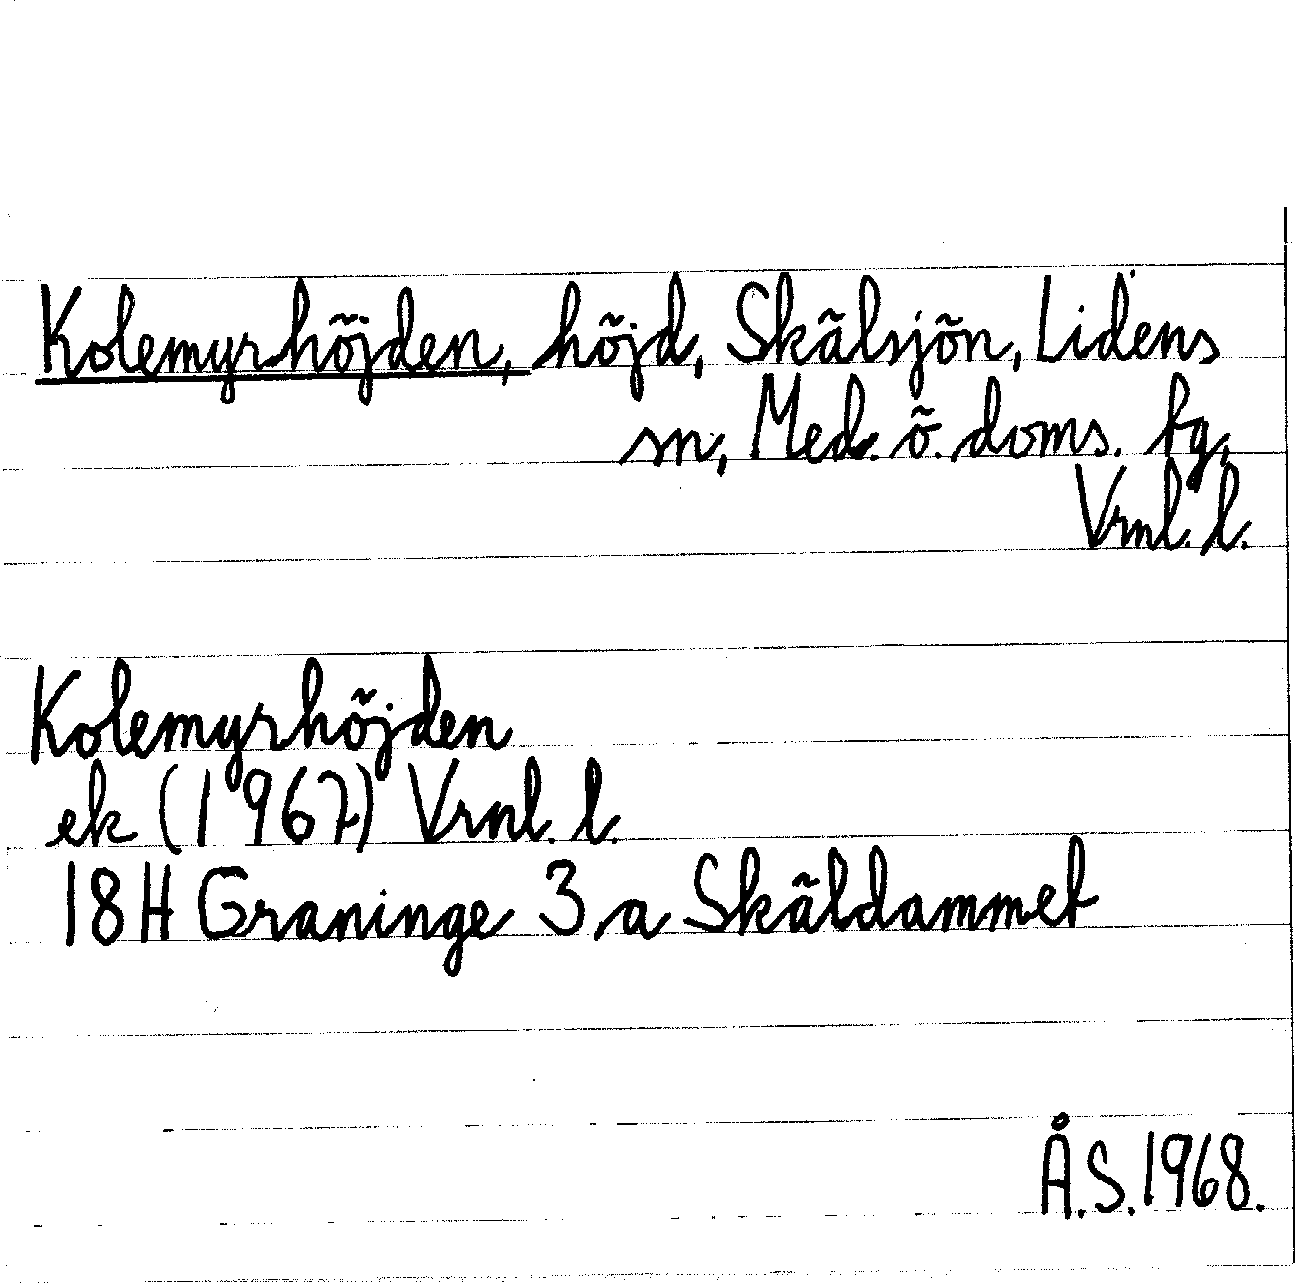 Kolemyrhöjden, höjd, Skälsjön, Lidens
sn, Med. ö. doms. fg,
Vrnl. l.
Kolemyrhöjden
ek (1967) Vrnl. l.
18H Graninge 3 a Skäldammet
Å.S. 1968.